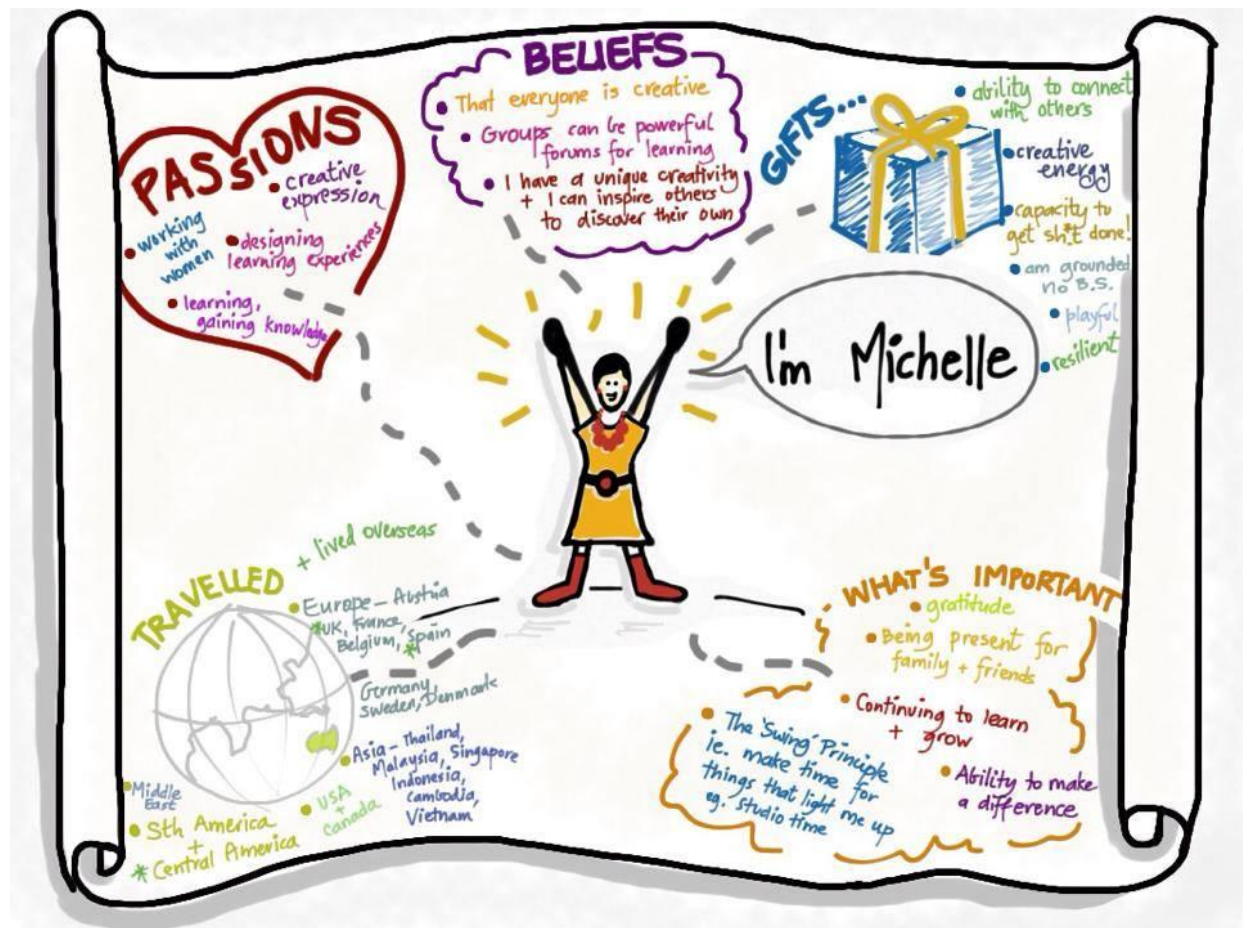 PASSIONS
• creative
expression
• working
with
women
• designing
learning experiences
• learning,
gaining knowledge
BELIEFS
• That everyone is creative
• Groups can be powerful
forums for learning
• I have a unique creativity
+ I can inspire others
to discover their own
GIFTS...
• ability to connect
with others
• creative
energy
• capacity to
get sh*t done!
• am grounded
no B.S.
• playful
• resilient
I'm Michelle
TRAVELLED
+ lived overseas
• Europe – Austria
*UK, France,
Belgium, *Spain
Germany,
Sweden, Denmark
• Asia – Thailand,
Malaysia, Singapore
Indonesia,
Cambodia,
Vietnam
• USA
+
Canada
• Middle
East
• Sth America
+
* Central America
WHAT'S IMPORTANT
• gratitude
• Being present for
family + friends
• Continuing to learn
+ grow
• The 'Swing' Principle
ie. make time for
things that light me up
eg. studio time
• Ability to make
a difference